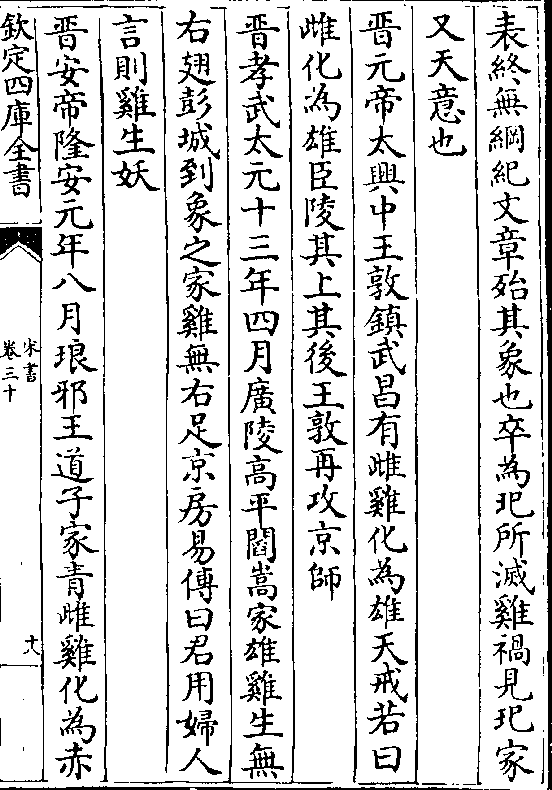 表終無綱紀文章殆其象也卒為玘所滅雞禍見玘家
又天意也
晉元帝太興中王敦鎮武昌有雌雞化為雄天戒若曰
雌化為雄臣陵其上其後王敦再攻京師
晉孝武太元十三年四月廣陵高平閻嵩家雄雞生無
右翅彭城到象之家雞無右足京房易傳曰君用婦人
言則雞生妖
晉安帝隆安元年八月琅邪王道子家青雌雞化為赤
欽定四庫全書
宋書
卷三十
十八